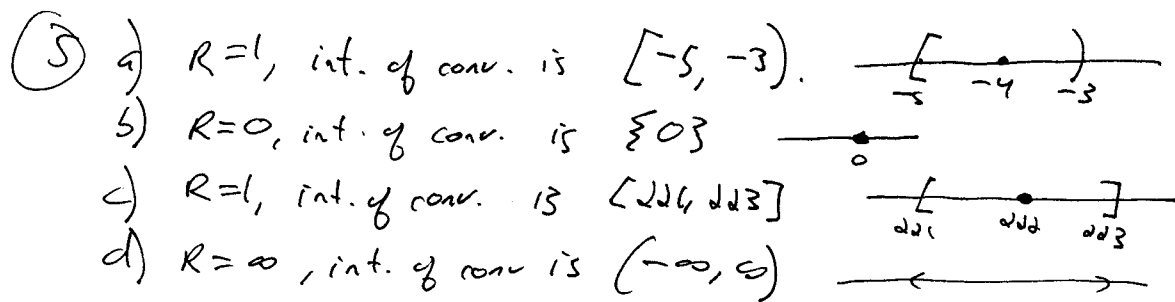 5 a) R=1, int. of conv. is [-5, -3). -5 -4 -3
b) R=0, int. of conv. is {0} 0
c) R=1, int. of conv. is [221, 223] 221 222 223
d) R=∞, int. of conv is (-∞, ∞)